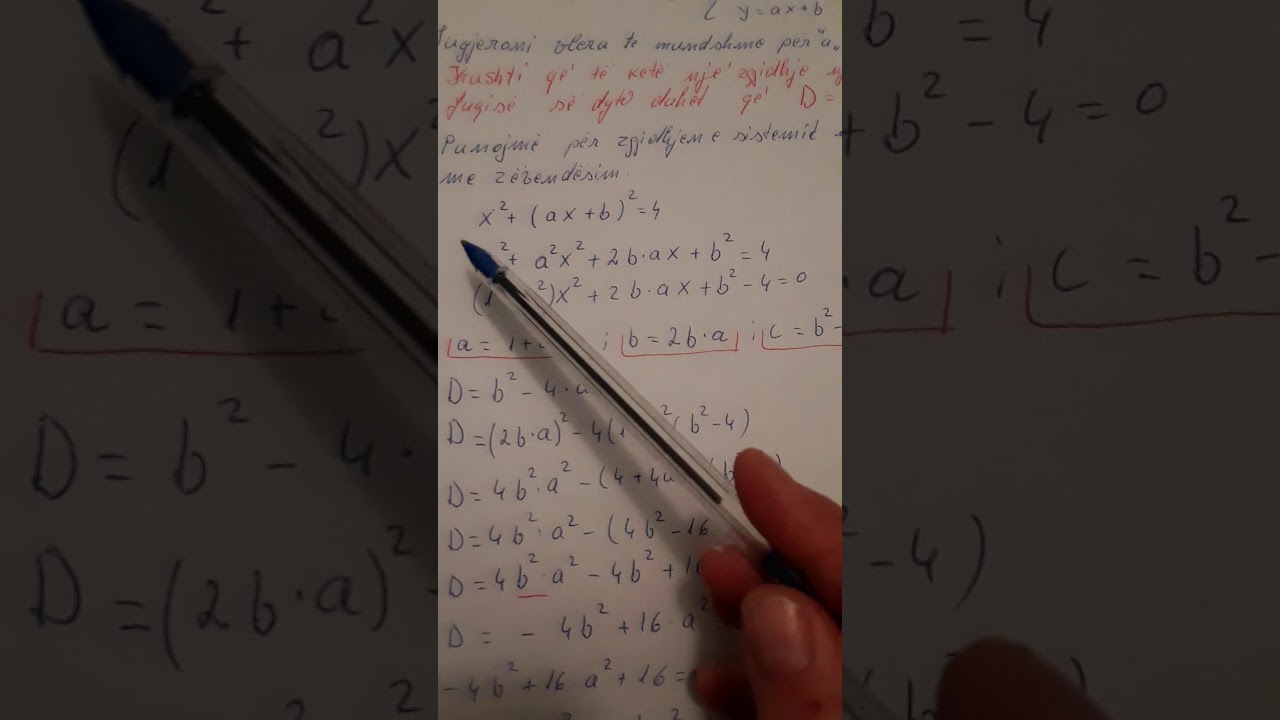 y = ax + b
vlera të mundshme për "a"
Kushti që të ketë një zgjidhje
së dytë duhet që D =
Punojmë për zgjidhjen e sistemit
me zëvendësim.
x² + (ax + b)² = 4
² + a²x² + 2b·ax + b² = 4
(1 ²)x² + 2b·ax + b² - 4 = 0
a = 1 + ; b = 2b·a ; c = b² -
D = b² - 4·
D = (2b·a)² - 4(1 ² (b² - 4)
D = 4b²·a² - (4 + 4a
D = 4b²·a² - (4b² - 16
D = 4b²·a² - 4b² + 16
D = - 4b² + 16·a²
-4b² + 16·a² + 16 =